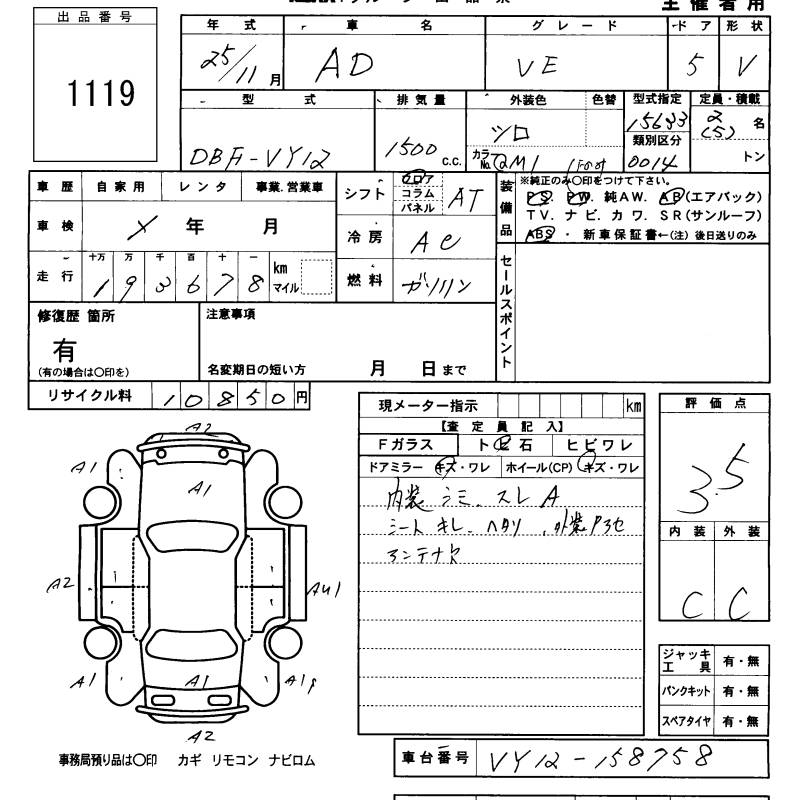 主催者用
出品番号
1119
年式 車名 グレード ドア 形状
25/11月 AD VE 5 V
型式 排気量 外装色 色替 型式指定 定員・積載
DBF-VY12 1500 c.c. シロ 15633 2(5) 名
カラーNo. 類別区分
0014 トン
車歴 自家用 レンタ 事業.営業車
シフト フロア コラム パネル AT
装備品 ※純正のみ〇印をつけて下さい。
PS. PW. 純AW. AB(エアバック)
TV. ナビ. カワ. SR(サンルーフ)
ABS ・ 新車保証書←(注) 後日送りのみ
車検 年 月
冷房 AC
走行 十万 万 千 百 十 一
193678 km マイル
燃料 ガソリン
セールスポイント
修復歴 箇所
有
(有の場合は〇印を)
注意事項
名変期日の短い方 月 日まで
リサイクル料 10850円
現メーター指示 km
【査定員記入】
Fガラス トビ石 ヒビワレ
ドアミラー キズ・ワレ ホイール(CP) キズ・ワレ
内装 シミ、スレ A
シート キレ、ヘタリ、外装
アンテナ欠
評価点
3.5
内装 外装
C C
A2
A1 A1
A1
A2 AU1
A1 A1 A1
A2
ジャッキ工具 有・無
パンクキット 有・無
スペアタイヤ 有・無
事務局預り品は〇印 カギ リモコン ナビロム
車台番号 VY12-158758